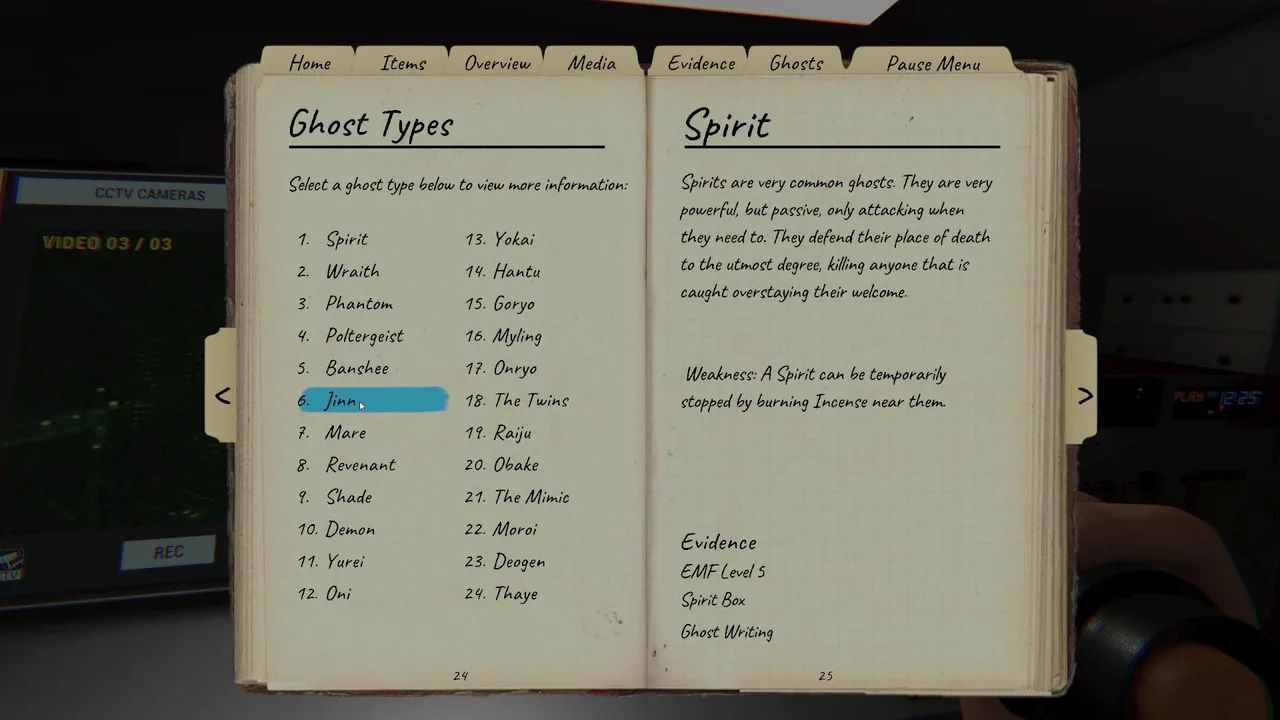 Home
Items
Overview
Media
Evidence
Ghosts
Pause Menu
Ghost Types
Select a ghost type below to view more information:
1. Spirit
2. Wraith
3. Phantom
4. Poltergeist
5. Banshee
6. Jinn
7. Mare
8. Revenant
9. Shade
10. Demon
11. Yurei
12. Oni
13. Yokai
14. Hantu
15. Goryo
16. Myling
17. Onryo
18. The Twins
19. Raiju
20. Obake
21. The Mimic
22. Moroi
23. Deogen
24. Thaye
24
Spirit
Spirits are very common ghosts. They are very
powerful, but passive, only attacking when
they need to. They defend their place of death
to the utmost degree, killing anyone that is
caught overstaying their welcome.
Weakness: A Spirit can be temporarily
stopped by burning Incense near them.
Evidence
EMF Level 5
Spirit Box
Ghost Writing
25
<
>
CCTV CAMERAS
VIDEO 03 / 03
REC
PLAY
12:25